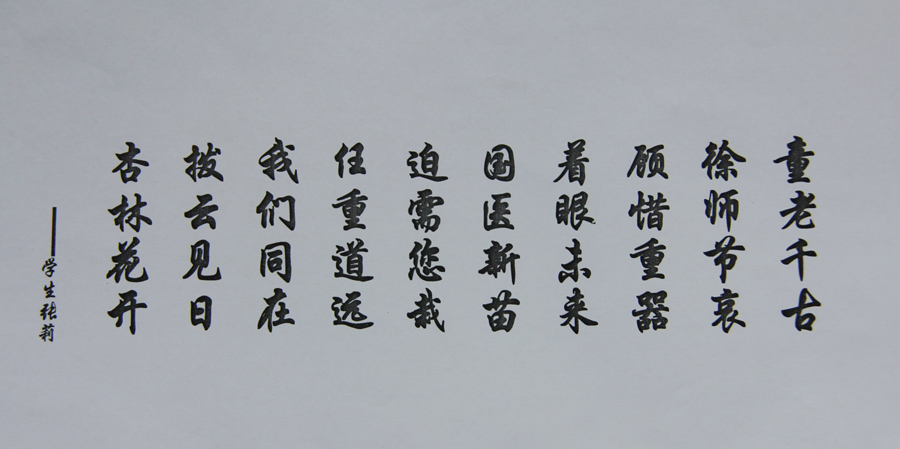 童老千古
徐师节哀
顾惜重器
着眼未来
国医新苗
迫需您栽
任重道远
我们同在
拨云见日
杏林花开
——学生张莉